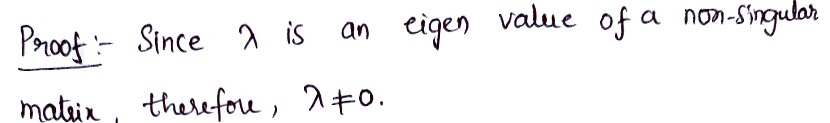 Proof :- Since λ is an eigen value of a non-singular
matrix, therefore, λ≠0.